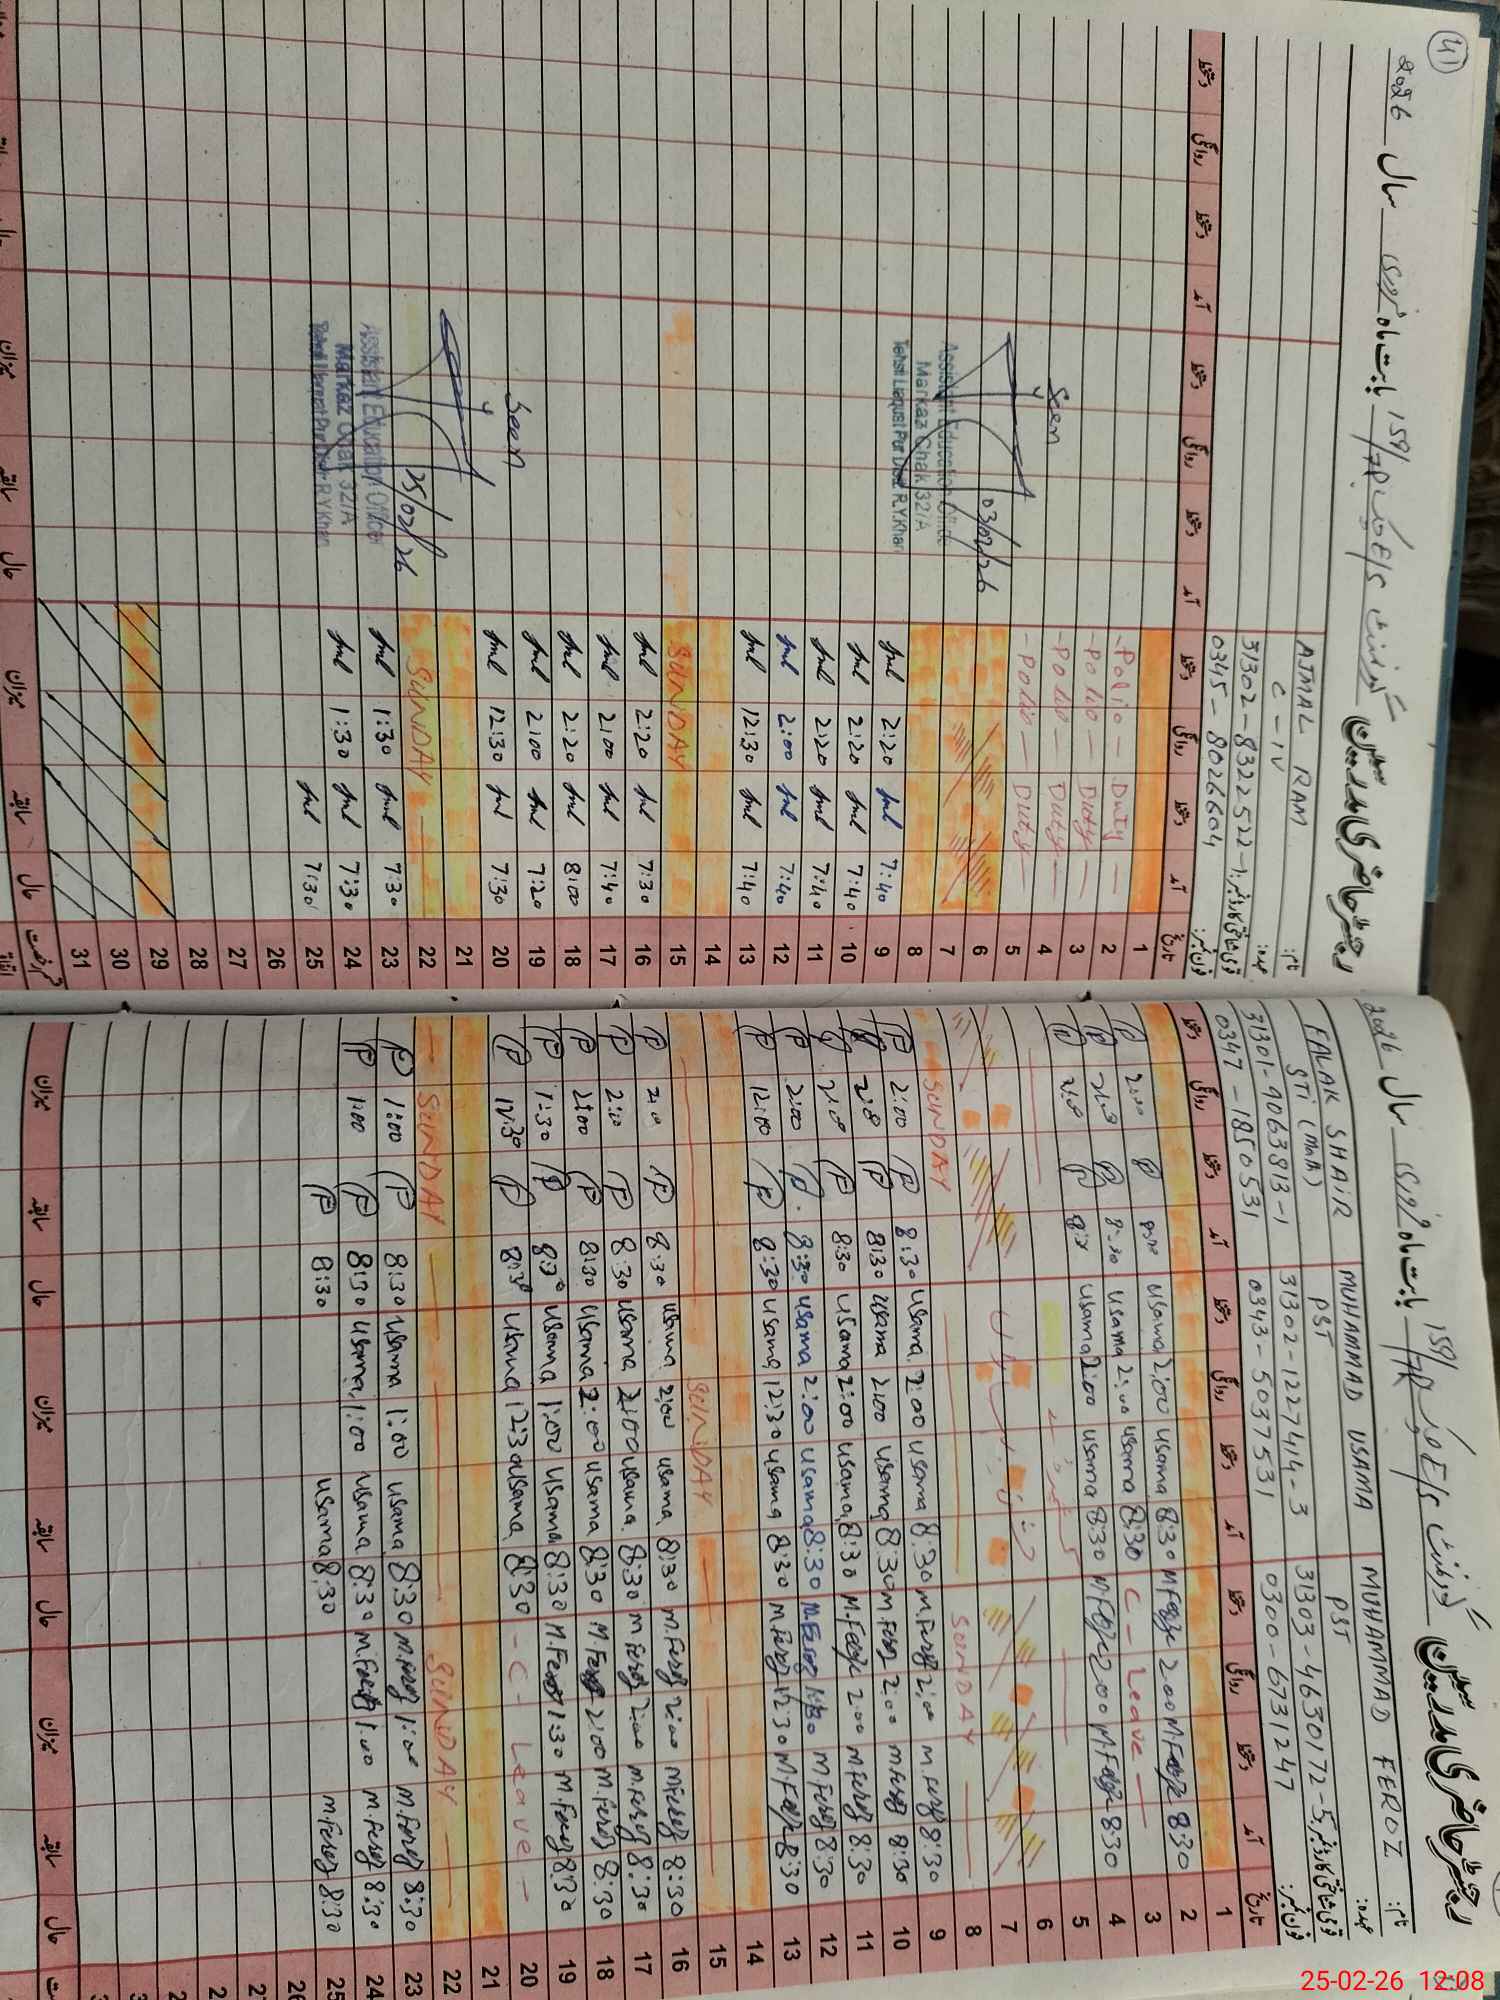 41
رجسٹر حاضری مدرسین گورنمنٹ E/S بابت ماہ فروری سال 2026
159/7R
نام: AJMAL RAM
عہدہ: C - IV
31302-8322522-1
0345-8026604
تاریخ آمد دستخط روانگی دستخط آمد دستخط روانگی دستخط آمد دستخط روانگی دستخط
1
2 - Polio - Duty -
3 - Polio - Duty -
4 - Polio - Duty -
5 - Polio - Duty -
6
7
8
9 7:40 2:20
10 7:40 2:20
11 7:40 2:20
12 7:40 2:00
13 7:40 12:30
14
15 SUNDAY
16 7:30 2:20
17 7:40 2:00
18 8:00 2:20
19 7:20 2:00
20 7:30 12:30
21
22 SUNDAY
23 7:30 1:30
24 7:30 1:30
25 7:30
26
27
28
29
30
31
Seen
03/02/26
Assistant Education Officer
Markaz Chak 32/A
Tehsil Liaqat Pur Distt R.Y.Khan
Seen
25/02/26
Assistant Education Officer
Markaz Chak 32/A
Tehsil Liaqat Pur Distt R.Y.Khan
حال سابقہ میزان حال سابقہ میزان حال
رجسٹر حاضری مدرسین گورنمنٹ E/S بابت ماہ فروری سال 2026
159/7R
نام: MUHAMMAD FEROZ MUHAMMAD USAMA FALAK SHAIR
عہدہ: PST PST STI (M&A)
31303-4630172-5 31302-1227414-3 31301-9063813-1
0300-6731247 0343-5037531 0347-1850531
تاریخ آمد دستخط روانگی دستخط آمد دستخط روانگی دستخط آمد دستخط روانگی دستخط
1
2 8:30 M.Feroz 2:00 M.Feroz 8:30 usama 2:00 usama 2:00
3 C - Leave 8:30 usama 2:00 usama 8:30
4 8:30 M.Feroz 2:00 M.Feroz 8:30 usama 2:00 usama
5
6
7
8 SUNDAY SUNDAY
9 8:30 M.Feroz 2:00 M.Feroz 8:30 usama 2:00 usama 8:30 2:00
10 8:30 M.Feroz 2:00 M.Feroz 8:30 usama 2:00 usama 8:30
11 8:30 M.Feroz 2:00 M.Feroz 8:30 usama 2:00 usama 8:30
12 8:30 M.Feroz M.Feroz 8:30 usama 2:00 usama 8:30 2:00
13 8:30 M.Feroz 12:30 M.Feroz 8:30 usama 12:30 usama 8:30 12:00
14
15 SUNDAY
16 8:30 M.Feroz 2:00 M.Feroz 8:30 usama 2:00 usama 8:30 2:00
17 8:30 M.Feroz 2:00 M.Feroz 8:30 usama 2:00 usama 8:30
18 8:30 M.Feroz 2:00 M.Feroz 8:30 usama 2:00 usama 8:30 2:00
19 8:30 M.Feroz 1:30 M.Feroz 8:30 usama 1:00 usama 8:30 1:30
20 - C - Leave - 8:30 usama 12:30 usama 8:30 12:30
21
22 SUNDAY SUNDAY
23 8:30 M.Feroz 1:00 M.Feroz 8:30 usama 1:00 usama 8:30 1:00
24 8:30 M.Feroz 1:00 M.Feroz 8:30 usama 1:00 usama 8:30 1:00
25 8:30 M.Feroz 8:30 usama 8:30
26
حال سابقہ میزان حال سابقہ میزان حال سابقہ میزان
25-02-26 12:08